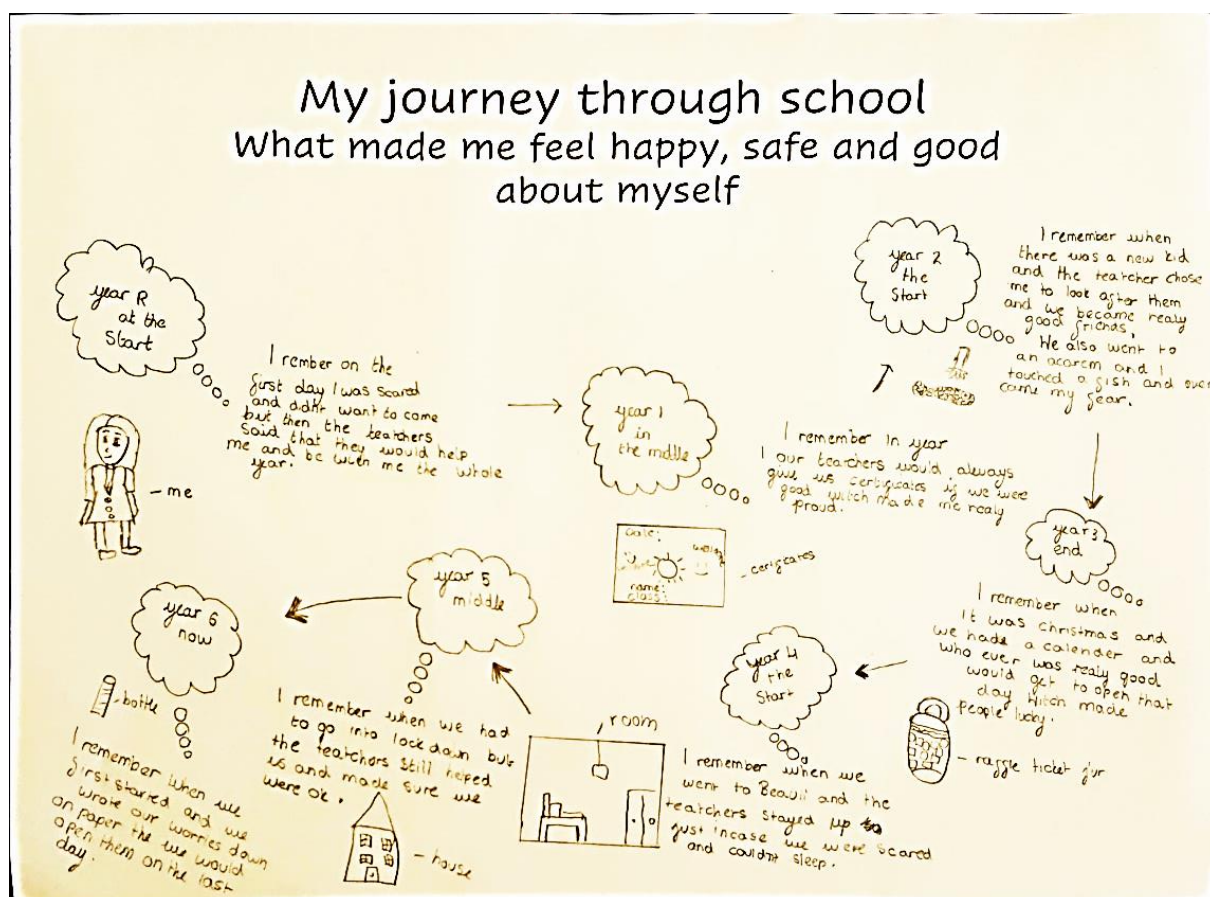 My journey through school
What made me feel happy, safe and good
about myself
year R
at the
Start
I rember on the
first day I was scared
and didn't want to come
but then the teatchers
said that they would help
me and be with me the whole
year.
me
year 1
in
the mddle
I remember In year
1 our teatchers would always
give us certificates if we were
good witch made me realy
proud.
date:
name:
class:
cerificates
year 2
the
Start
I remember when
there was a new kid
and the teatcher chose
me to look after them
and we became realy
good friends,
We also went to
an acorem and I
touched a fish and over
came my fear.
year 3
end
I remember when
It was christmas and
we hade a calender and
who ever was realy good
would get to open that
day witch made
people lucky.
raffle ticket jar
year 4
the
Start
I remember when we
went to and the
teatchers stayed up to
just incase we were scared
and couldnt sleep.
room
year 5
middle
I remember when we had
to go into lockdown but
the teatchers still helped
us and made sure we
were ok.
house
year 6
now
bottle
I remember when we
first started and we
wrote our worries down
on paper the we would
open them on the last
day.